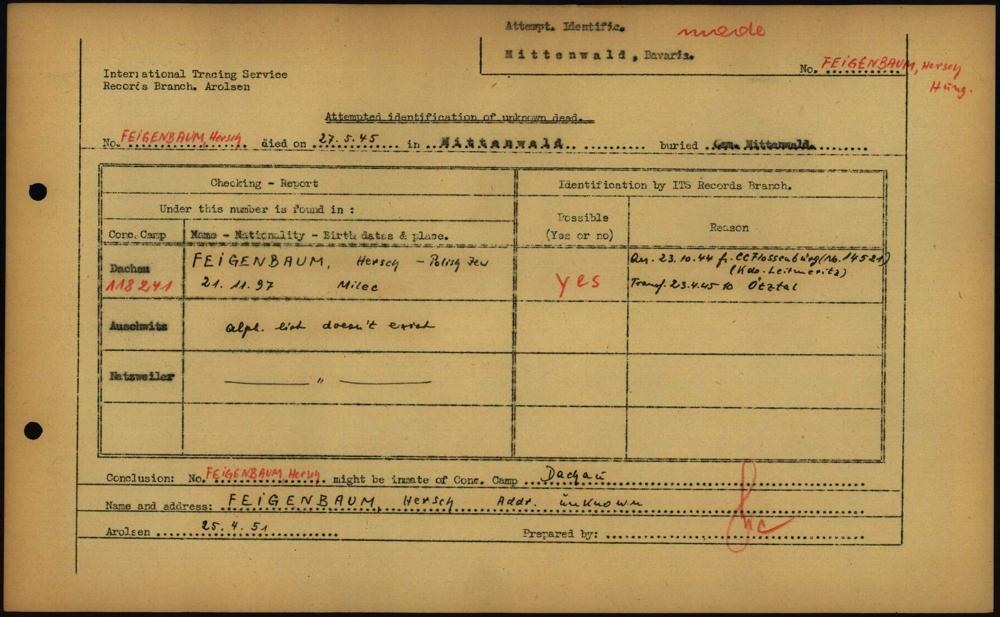 Attempt. Identific. made
Mittenwald, Bavaria.
No. FEIGENBAUM, Hersch
Hung.
International Tracing Service
Records Branch. Arolsen
Attempted identification of unknown dead.
No. FEIGENBAUM, Hersch died on 27.5.45 in Mittenwald buried Cem. Mittenwald.
Checking - Report
Identification by ITS Records Branch.
Under this number is found in :
Conc. Camp
Name - Nationality - Birth dates & place.
Possible
(Yes or no)
Reason
Dachau
118241
FEIGENBAUM, Hersch - Polish Jew
21.11.97 Milec
yes
Arr. 23.10.44 fr. CC Flossenbürg (No. 14521)
(Kdo. Leitmeritz)
Transf. 23.4.45 to Ötztal
Auschwitz
alph. list doesn't exist
Natzweiler
——— " ———
Conclusion: No. FEIGENBAUM, Hersch might be inmate of Conc. Camp Dachau
Name and address: FEIGENBAUM, Hersch Addr. unknown
Arolsen 25.4.51 Prepared by: